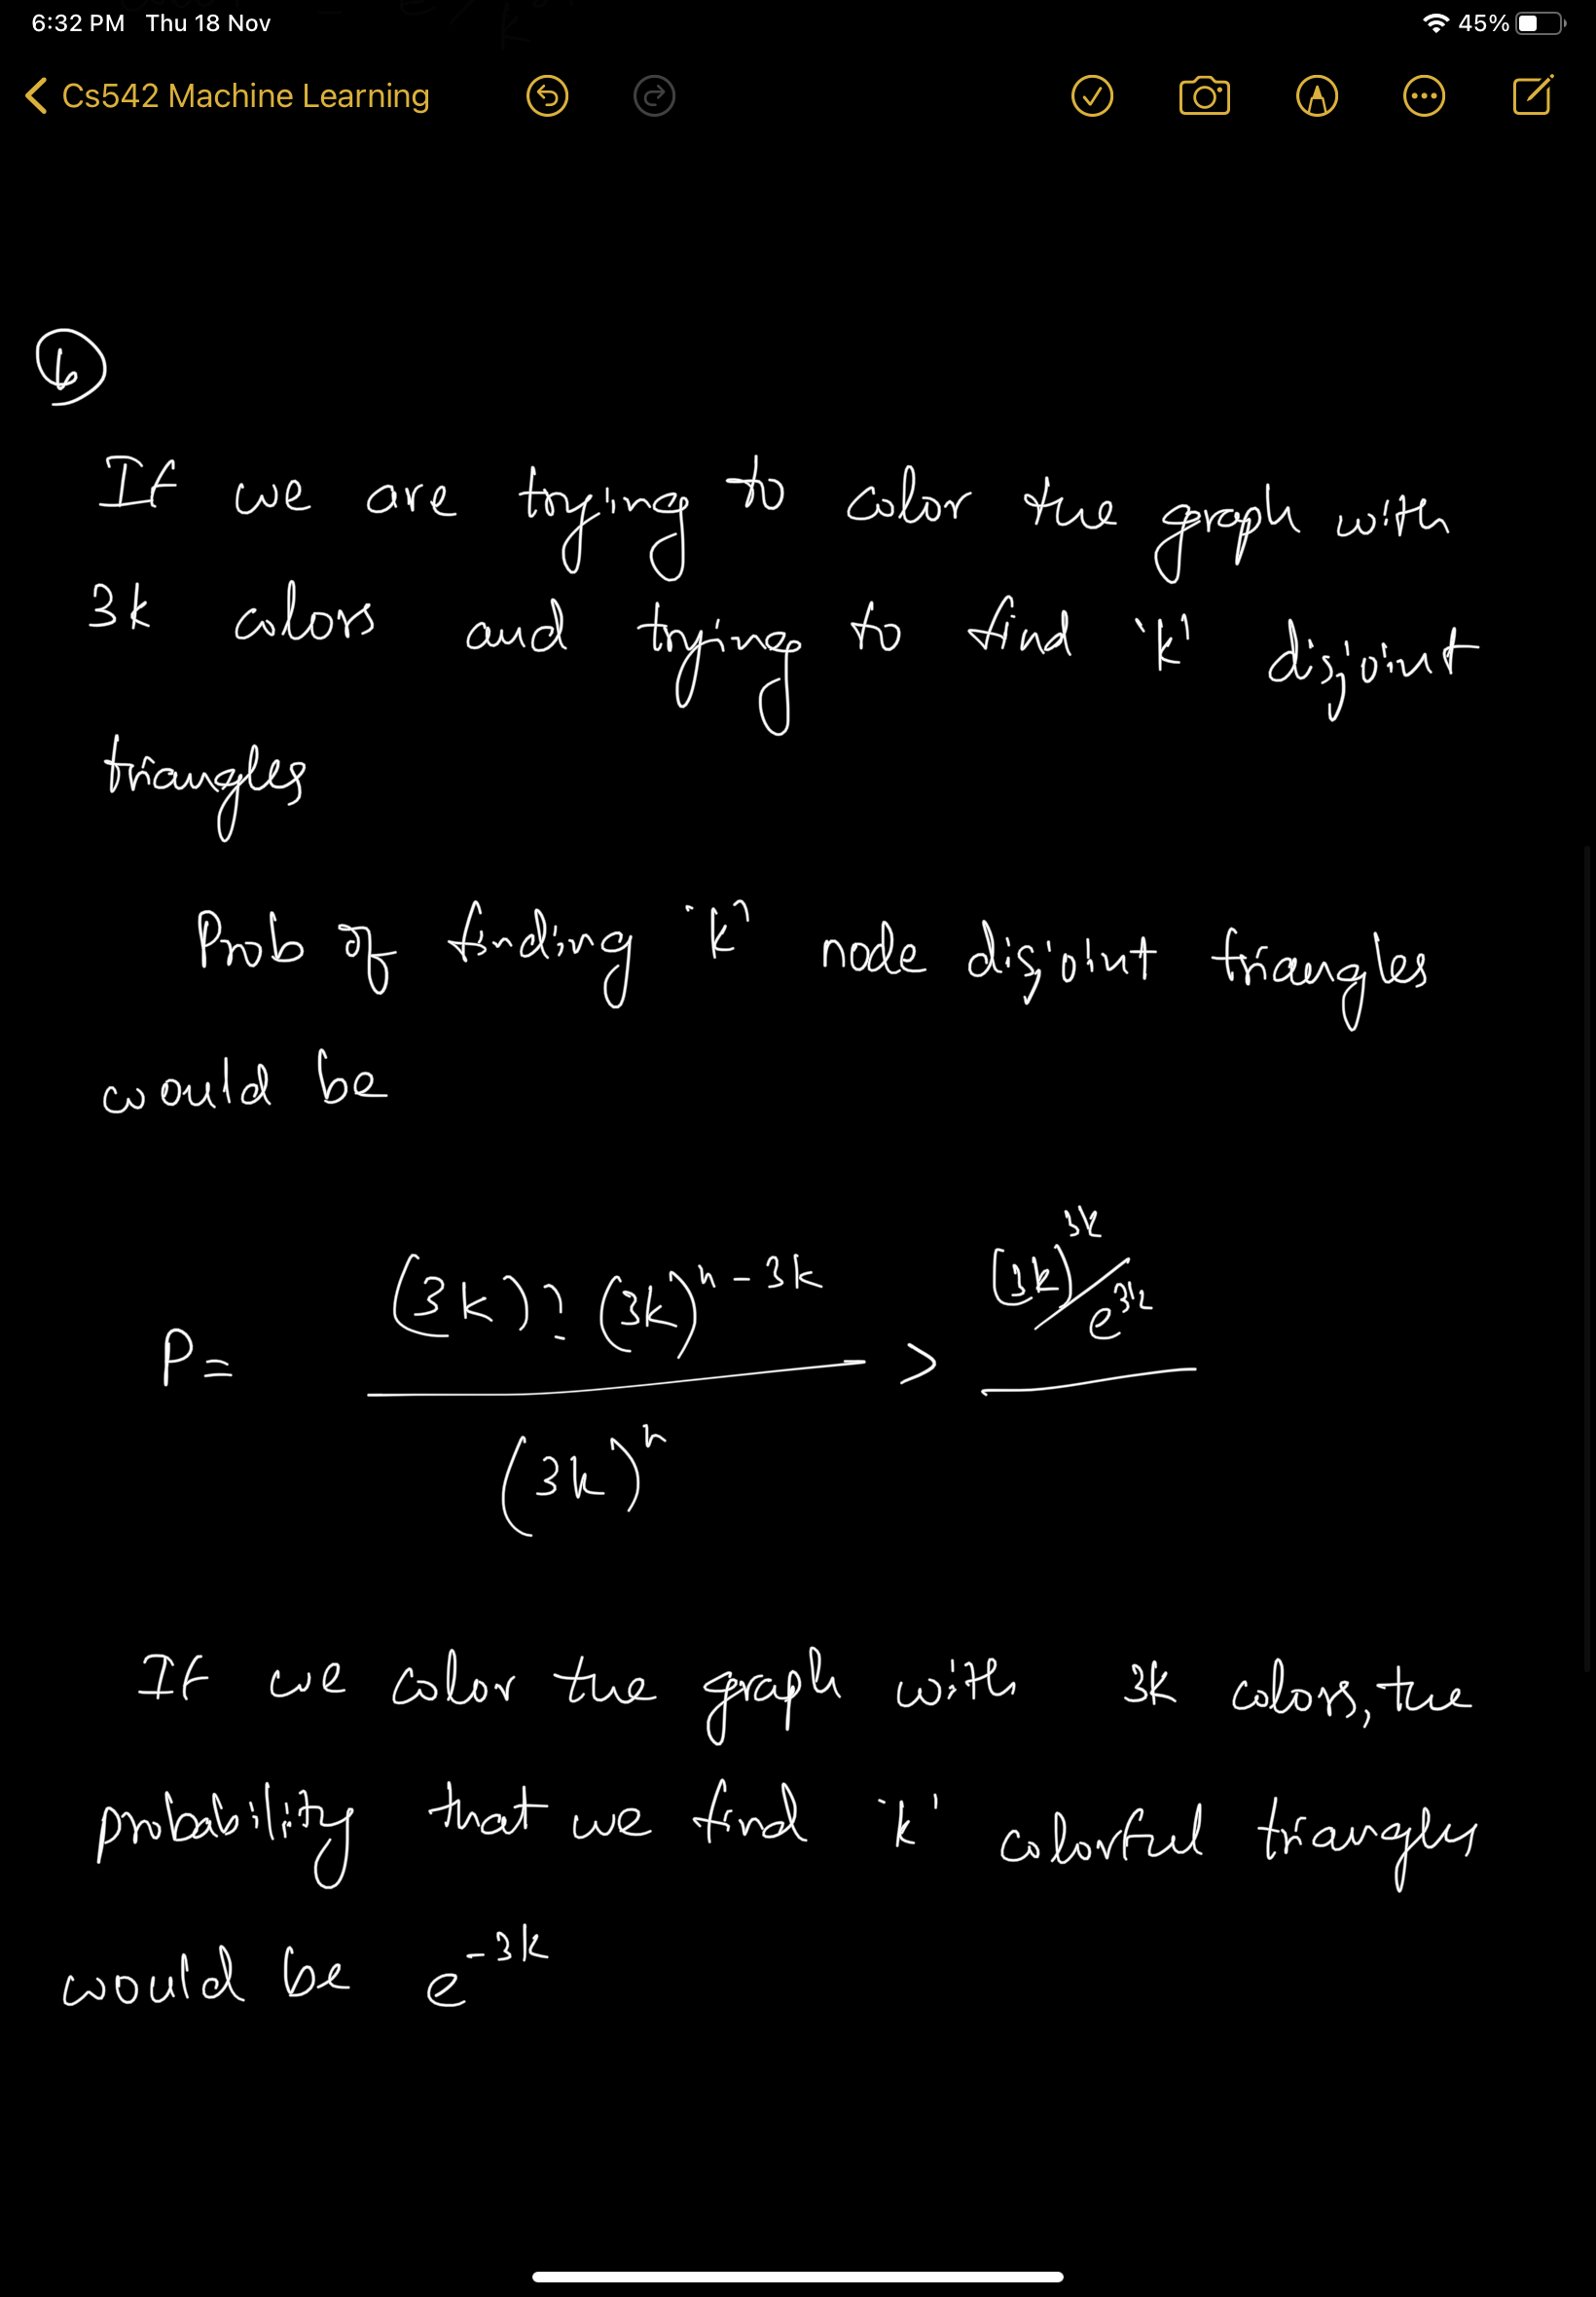 6:32 PM Thu 18 Nov 45%
Cs542 Machine Learning
6
If we are trying to color the graph with
3k colors and trying to find 'k' disjoint
triangles
Prob of finding 'k' node disjoint triangles
would be
P = (3k)! (3k)^n-3k / (3k)^n > (3k)^3k / e^3k
If we color the graph with 3k colors, the
probability that we find 'k' colorful triangles
would be e^-3k